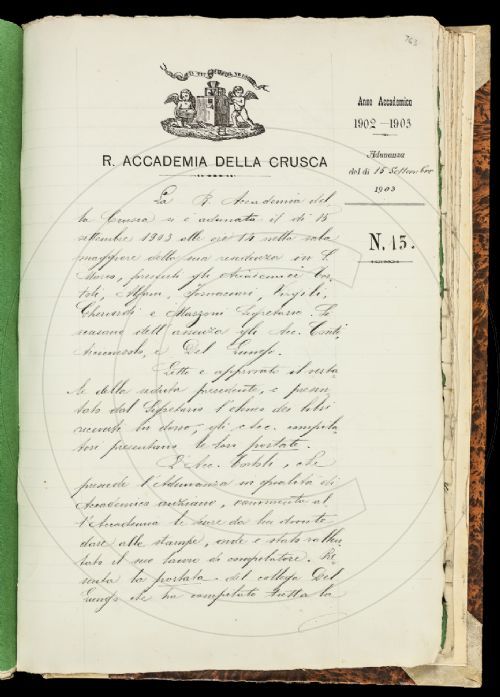 R. ACCADEMIA DELLA CRUSCA
Anno Accademico
1902-1903
Adunanza
del dì 15 Settembre
1903
N. 15.
La R. Accademia del
la Crusca si è adunata il dì 15
settembre 1903 alle ore 14 nella sala
maggiore della sua residenza in S.
Marco, presenti gli Accademici Tor
toli, Alfani, Fornaciari, Virgili,
Gherardi e Mazzoni Segretario. Si
scusano dell'assenza gli Acc. Conti,
e Del Lungo.
Letto e approvato il verba
le della seduta precedente, e presen
tato dal Segretario l'elenco dei libri
ricevuti in dono, gli Acc. compila
tori presentano le loro portate.
L'Acc. Tortoli, che
presiede l'Adunanza in qualità di
Accademico anziano, rammenta al
l'Accademia le cure da lui dovute
dare alle stampe, onde è stato rallen
tato il suo lavoro di compilatore. Pre
senta la portata del collega Del
Lungo che ha compilato tutta la